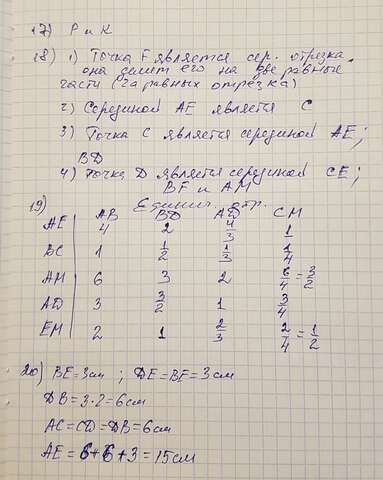 17) Р и К
18) 1) Точка F является сер. отрезка,
она делит его на две равные
части (2а равных отрезка)
2) Серединой АЕ является С
3) Точка С является серединой АЕ;
ВD
4) Точка D является серединой СЕ;
BF и АМ
19) Единич. отр.
АВ ВD АD СМ
АЕ 4 2 4/3 1
ВС 1 1/2 1/3 1/4
АМ 6 3 2 6/4 = 3/2
АD 3 3/2 1 3/4
ЕМ 2 1 2/3 2/4 = 1/2
20) ВЕ=3см ; DЕ=ВЕ=3см
DВ=3·2=6см
АС=СD=DВ=6см
АЕ = 6+6+3=15см